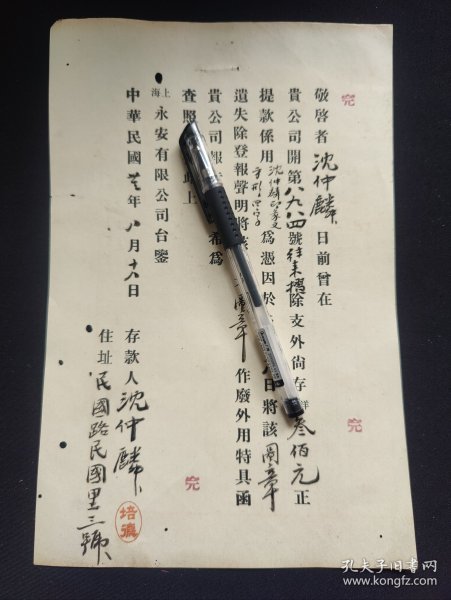 敬啓者沈仲麟日前曾在
貴公司開第八九八四號往来摺除支外尚存洋叁佰元正
提款係用沈仲麟印章文爲憑因於 日將該圖章
遺失除登報聲明將 圖章作廢外用特具函
貴公司報 希爲
查照 上
上海永安有限公司台鑒
中華民國 年八月十八日
存款人沈仲麟
住址民國路民國里三號
完
完
完
孔夫子旧书网
www.kongfz.com